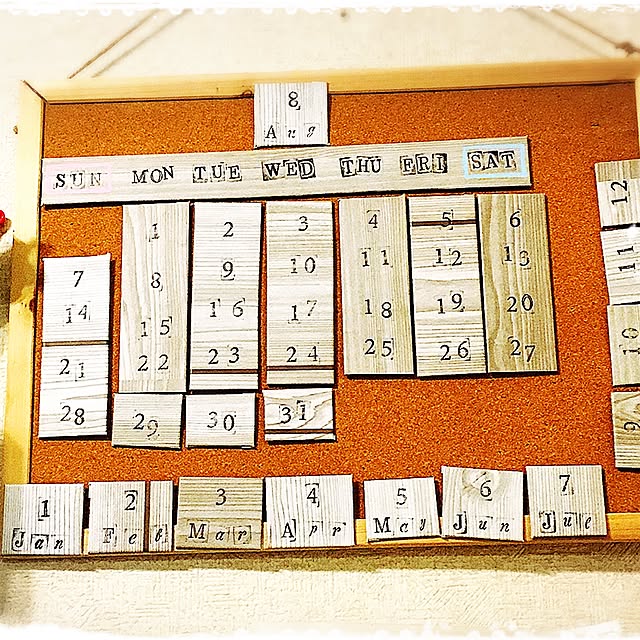 8
Aug
SUN MON TUE WED THU FRI SAT
1 2 3 4 5 6
7 8 9 10 11 12 13
14 15 16 17 18 19 20
21 22 23 24 25 26 27
28 29 30 31
12
11
10
9
1 2 3 4 5 6 7
Jan Feb Mar Apr May Jun Jue